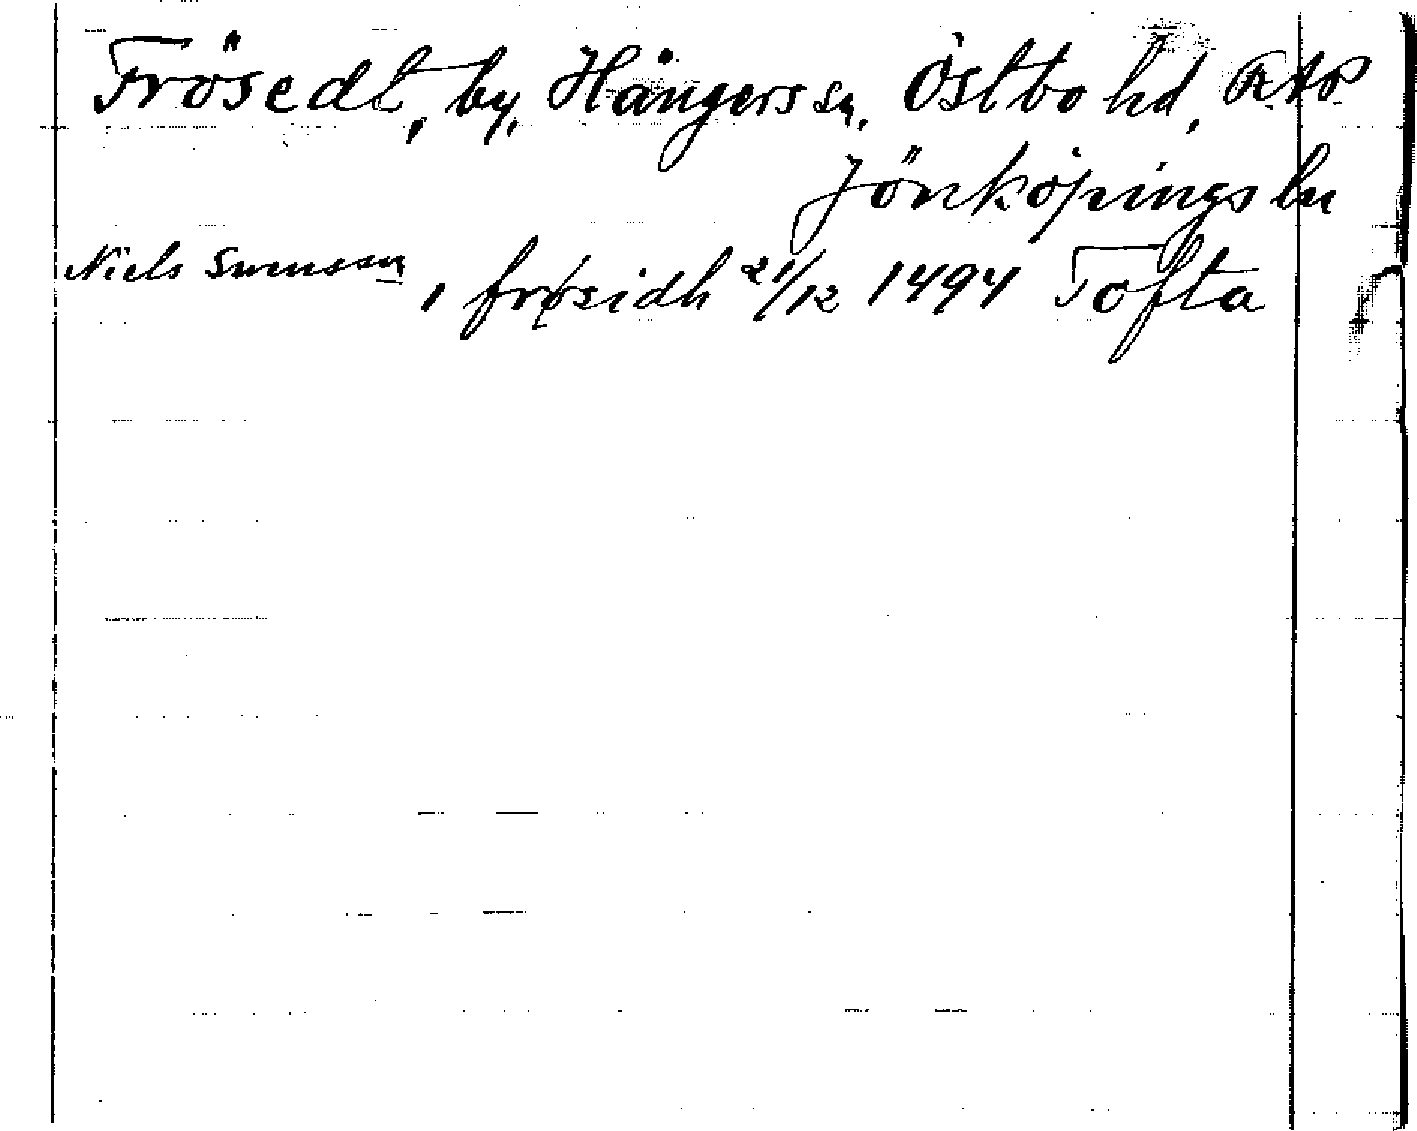 Frösedt, by, Hångers sn, Östbo hd, RAP
Jönköpings ln
Niels Swensson, i frøsidh 21/12 1494 Tofta